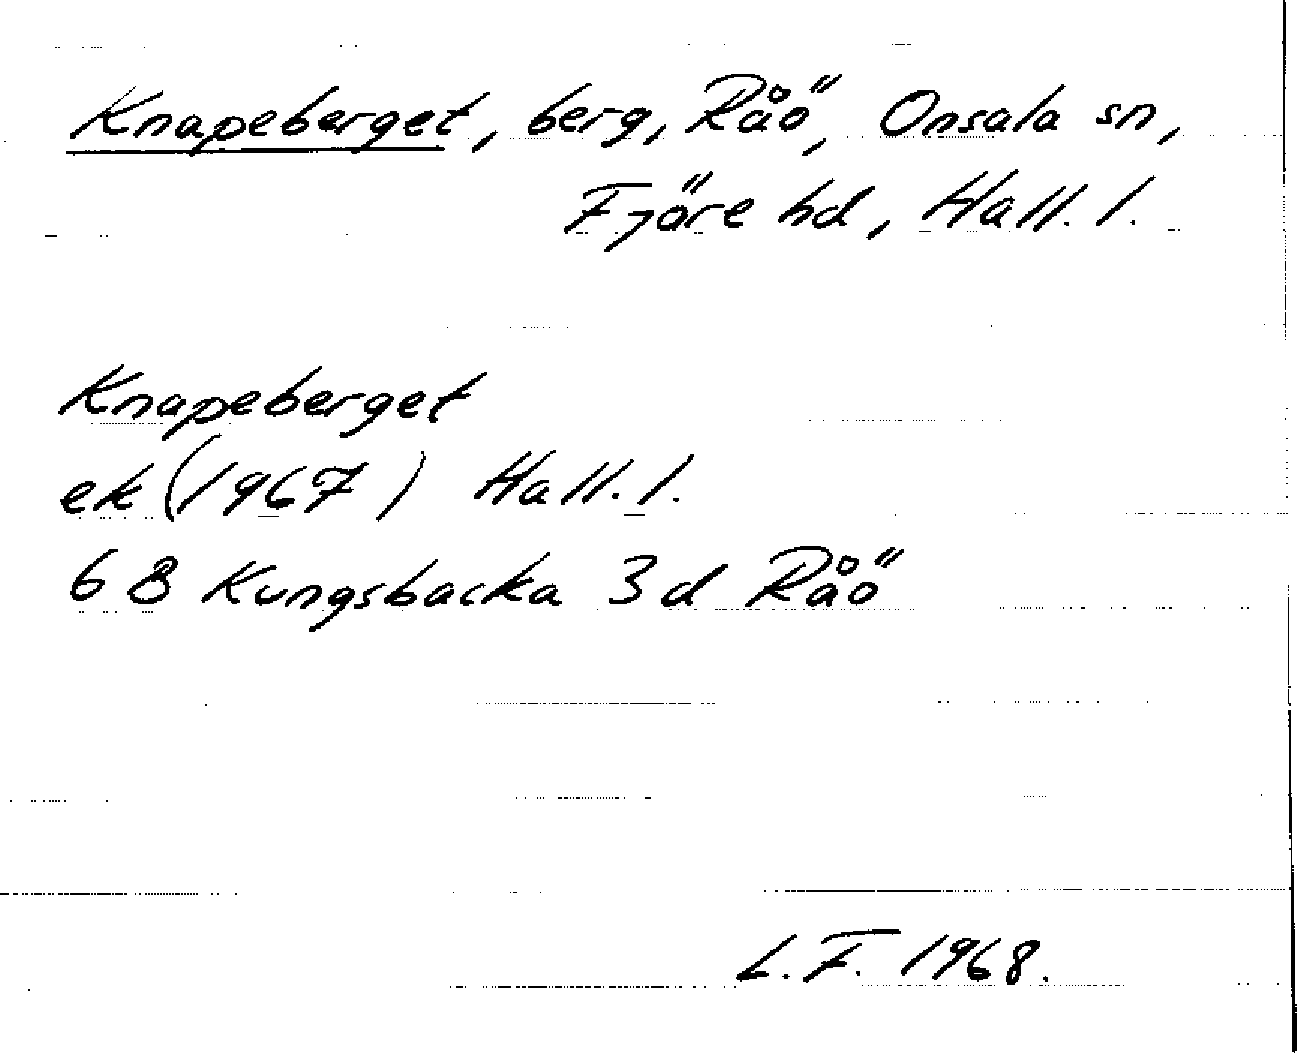 Knapeberget, berg, Råö, Onsala sn,
Fjäre hd, Hall. l.
Knapeberget
ek (1967) Hall. l.
6 B Kungsbacka 3 d Råö
L. F. 1968.